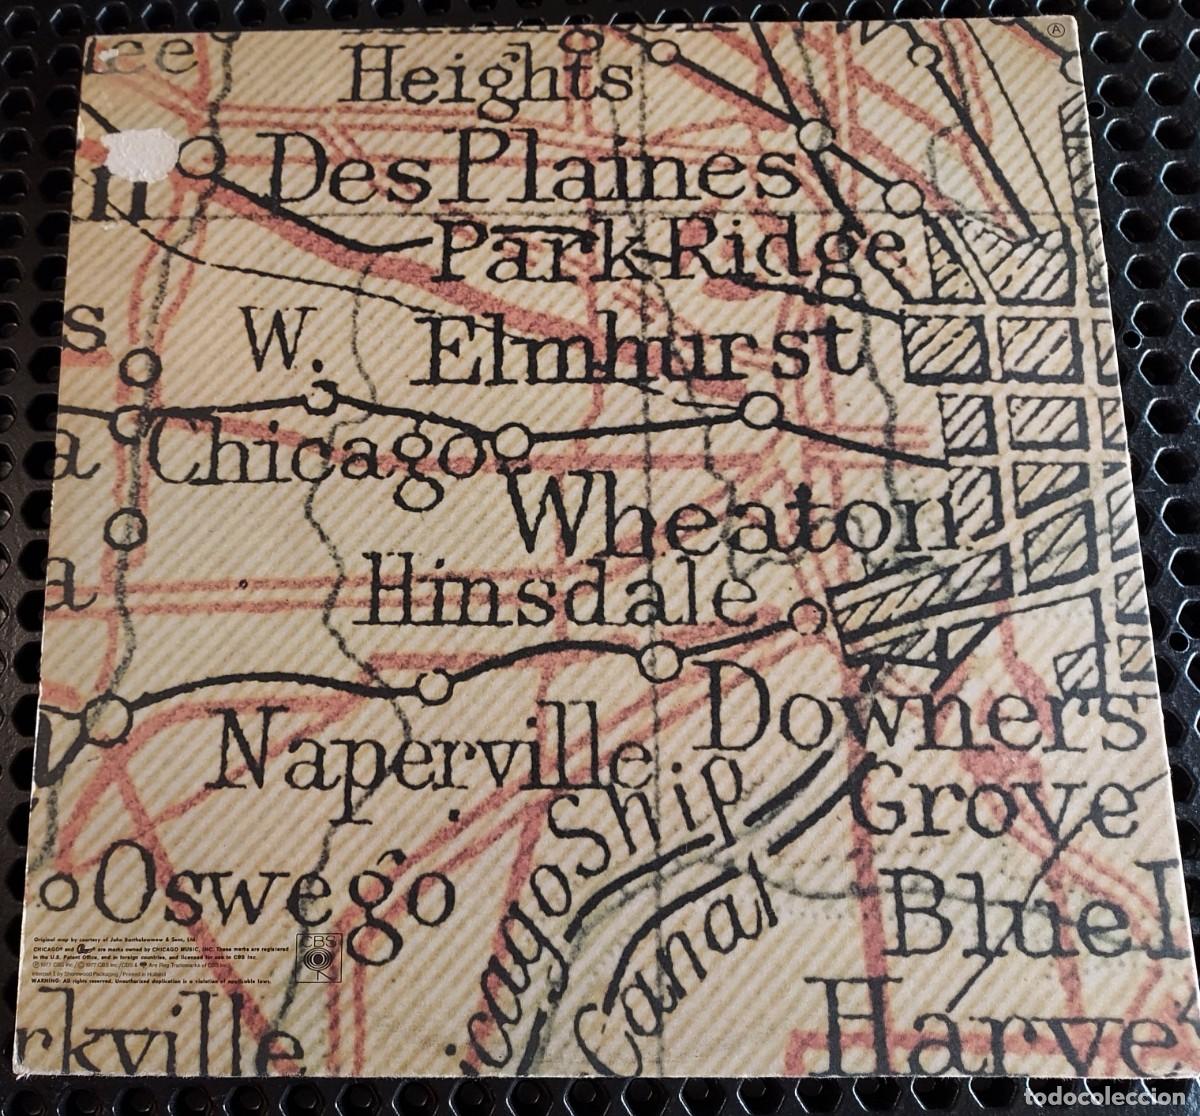 ee
Heights
Ⓐ
Des Plaines
n
Park Ridge
s
W.
Elmhurst
a
Chicago
Wheaton
a
Hinsdale
Downers
Naperville
Ship
Grove
Oswego
Blue I
cago
Canal
Original map by courtesy of John Bartholomew & Sons, Ltd.
CHICAGO® and Chicago® are marks owned by CHICAGO MUSIC, INC. These marks are registered
in the U.S. Patent Office, and in foreign countries, and licensed for use to CBS Inc.
℗ 1977 CBS Inc./© 1977 CBS Inc./CBS & Are Reg Trademarks of CBS Inc.
Interpak 3 by Shorewood Packaging / Printed in Holland
WARNING: All rights reserved. Unauthorized duplication is a violation of applicable laws.
CBS
rkville
Harve
todocoleccion